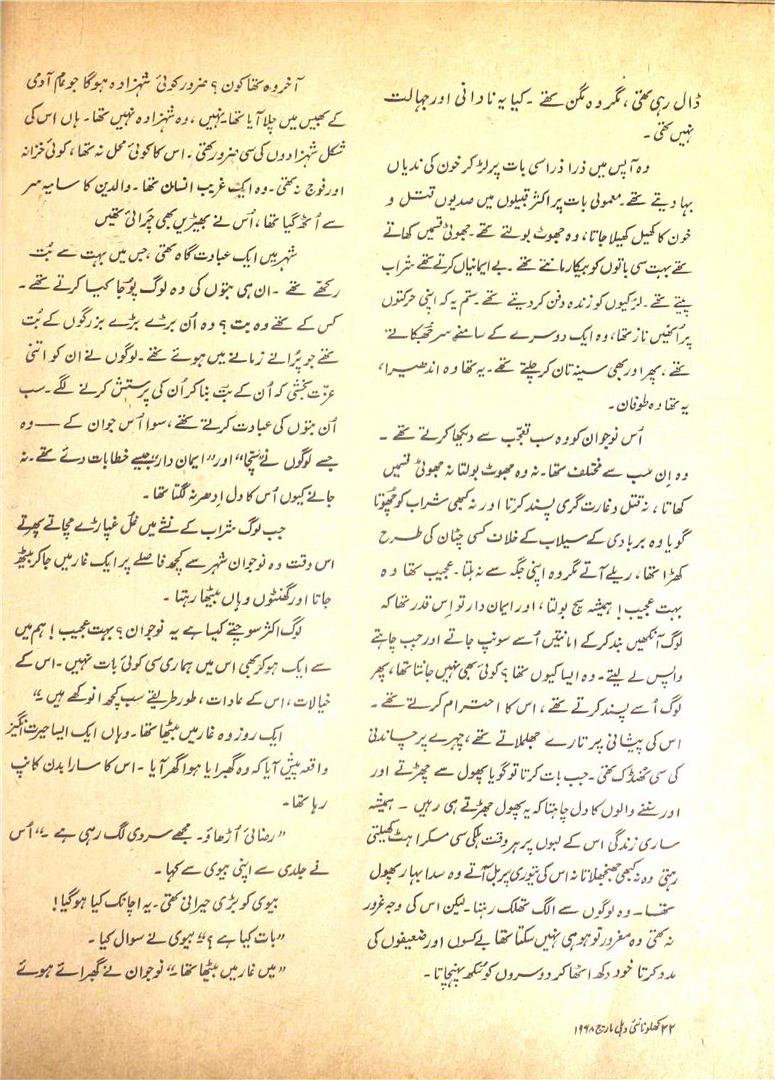 ڈال رہی تھی، مگر وہ مگن تھے۔ کیا یہ نادانی اور جہالت
نہیں تھی۔
وہ آپس میں ذرا ذرا سی بات پر لڑ کر خون کی ندیاں
بہا دیتے تھے۔ معمولی بات پر اکثر قبیلوں میں صدیوں قتل و
خون کا کھیل کھیلا جاتا، وہ جھوٹ بولتے تھے۔ جھوٹی قسمیں کھاتے
تھے بہت سی باتوں کو بیکار مانتے تھے۔ بے ایمانیاں کرتے تھے شراب
پیتے تھے۔ لڑکیوں کو زندہ دفن کر دیتے تھے۔ ستم یہ کہ اپنی حرکتوں
پر اُنھیں ناز تھا، وہ ایک دوسرے کے سامنے سر جھکاتے
تھے، پھر اور بھی سینہ تان کر چلتے تھے۔ یہ تھا وہ اندھیرا،
یہ تھا وہ طوفان۔
اُس نوجوان کو وہ سب تعجّب سے دیکھا کرتے تھے۔
وہ اِن سب سے مختلف تھا۔ نہ وہ جھوٹ بولتا نہ جھوٹی قسمیں
کھاتا، نہ قتل و غارت گری پسند کرتا اور نہ کبھی شراب کو چھُوتا
گویا وہ بربادی کے سیلاب کے خلاف کسی چٹان کی طرح
کھڑا تھا، ریلے آتے مگر وہ اپنی جگہ سے نہ ہلتا۔ عجیب تھا وہ
بہت عجیب! ہمیشہ سچ بولتا، اور ایمان دار تو اِس قدر تھا کہ
لوگ آنکھیں بند کر کے امانتیں اُسے سونپ جاتے اور جب چاہتے
واپس لے لیتے۔ وہ ایسا کیوں تھا؟ کوئی بھی نہیں جانتا تھا، پھر
لوگ اُسے پسند کرتے تھے، اس کا احترام کرتے تھے۔
اس کی پیشانی پر تارے جھلملاتے تھے، چہرے پر چاندنی
کی سی ٹھنڈک تھی۔ جب بات کرتا تو گویا پھول سے جھڑتے اور
اور سننے والوں کا دل چاہتا کہ یہ پھول جھڑتے ہی رہیں۔ ہمیشہ
ساری زندگی اس کے لبوں پر ہر وقت ہلکی سی مسکراہٹ کھیلتی
رہتی وہ نہ کبھی جھنجھلاتا نہ اس کی تیوری پر بل آتے وہ سدا بہار پھول
تھا۔ وہ لوگوں سے الگ تھلگ رہتا۔ لیکن اس کی وجہ غرور
نہ تھی وہ مغرور تو ہو ہی نہیں سکتا تھا بےکسوں اور ضعیفوں کی
مدد کرتا خود دکھ اٹھا کر دوسروں کو سُکھ پہنچاتا۔
آخر وہ تھا کون؟ ضرور کوئی شہزادہ ہوگا جو عام آدمی
کے بھیس میں چلا آیا تھا۔ نہیں، وہ شہزادہ نہیں تھا۔ ہاں اس کی
شکل شہزادوں کی سی ضرور تھی۔ اس کا کوئی محل نہ تھا، کوئی خزانہ
اور فوج نہ تھی۔ وہ ایک غریب انسان تھا۔ والدین کا سایہ سر
سے اُٹھ گیا تھا، اُس نے بھیڑیں بھی چَرائی تھیں
شہر میں ایک عبادت گاہ تھی، جس میں بہت سے بُت
رکھے تھے۔ ان ہی بتوں کی وہ لوگ پوُجا کیا کرتے تھے۔
کس کے تھے وہ بت؟ وہ اُن بڑے بڑے بزرگوں کے بُت
تھے جو پُرانے زمانے میں ہوئے تھے۔ لوگوں نے ان کو اتنی
عزّت بخشی کہ اُن کے بت بنا کر اُن کی پرستش کرنے لگے۔ سب
اُن بتوں کی عبادت کرتے تھے، سوا اُس جوان کے —— وہ
جسے لوگوں نے ”سچّا“ اور ”ایمان دار“ جیسے خطابات دئے تھے۔ نہ
جانے کیوں اُس کا دل اِدھر نہ لگتا تھا۔
جب لوگ شراب کے نشے میں غل غپاڑے مچاتے پھرتے
اس وقت وہ نوجوان شہر سے کچھ فاصلے پر ایک غار میں جا کر بیٹھ
جاتا اور گھنٹوں وہاں بیٹھا رہتا۔
لوگ اکثر سوچتے کیا ہے یہ نوجوان؟ بہت عجیب! ہم میں
سے ایک ہو کر بھی اس میں ہماری سی کوئی بات نہیں۔ اس کے
خیالات، اس کے عادات، طور طریقے سب کچھ انوکھے ہیں۔“
ایک روز وہ غار میں بیٹھا تھا۔ وہاں ایک ایسا حیرت انگیز
واقعہ پیش آیا کہ وہ گھبرایا ہوا گھر آیا۔ اس کا سارا بدن کانپ
رہا تھا۔
”رضائی اُڑھاؤ۔ مجھے سردی لگ رہی ہے۔“ اُس
نے جلدی سے اپنی بیوی سے کہا۔
بیوی کو بڑی حیرانی تھی۔ یہ اچانک کیا ہوگیا!
”بات کیا ہے؟“ بیوی نے سوال کیا۔
”میں غار میں بیٹھا تھا۔“ نوجوان نے گھبرائے ہوئے
۲۲ کھلونا نئی دہلی مارچ ۱۹۶۸